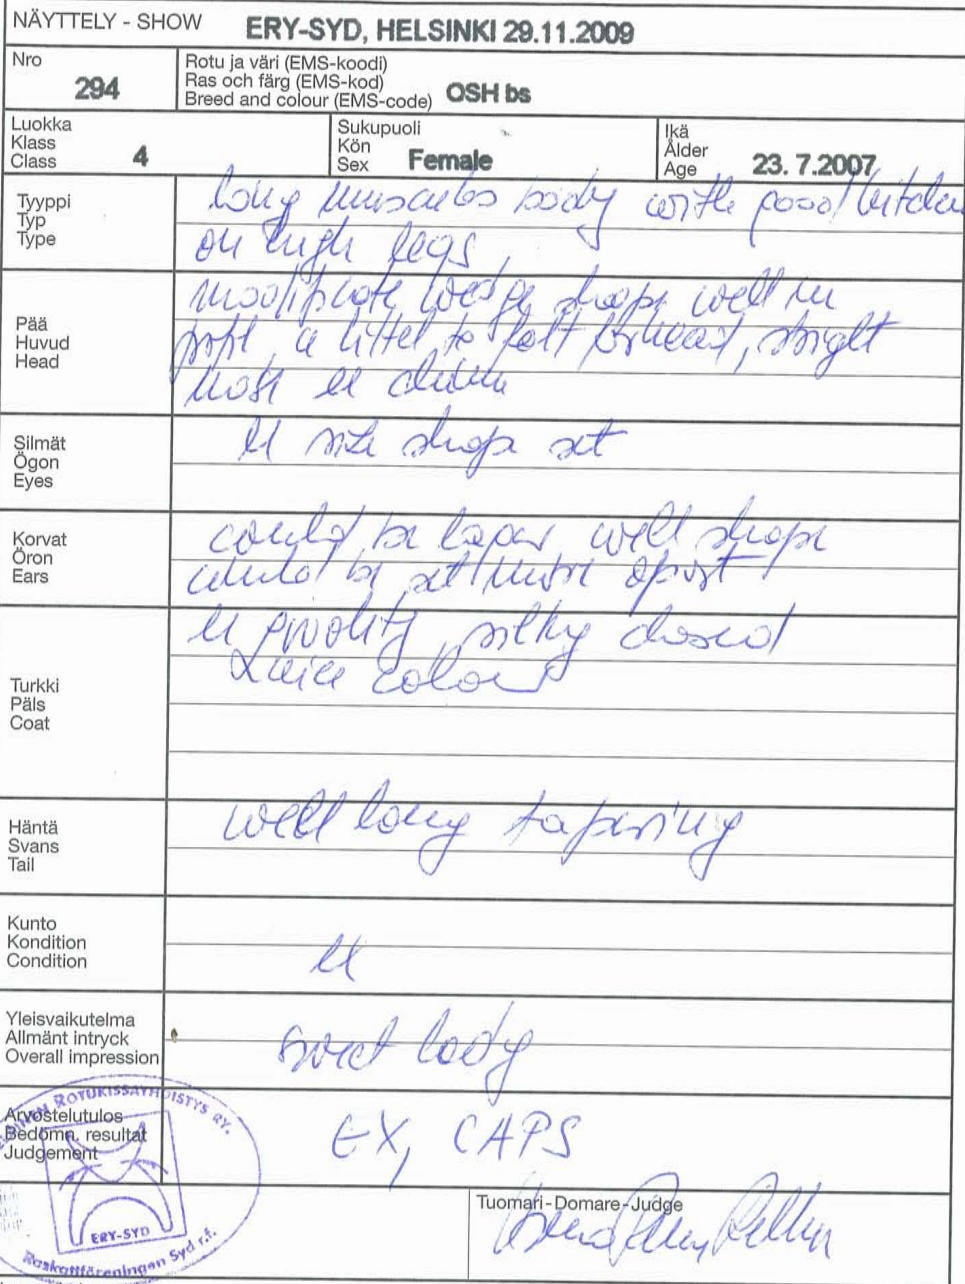 NÄYTTELY - SHOW ERY-SYD, HELSINKI 29.11.2009
Nro
294
Rotu ja väri (EMS-koodi)
Ras och färg (EMS-kod)
Breed and colour (EMS-code) OSH bs
Luokka
Klass
Class 4
Sukupuoli
Kön
Sex Female
Ikä
Ålder
Age 23. 7.2007
Tyyppi
Typ
Type
long body with good
on high legs
Pää
Huvud
Head
shape well in
a littel to forhead,
Silmät
Ögon
Eyes
shape set
Korvat
Öron
Ears
could be well shape
could be set more apart
Turkki
Päls
Coat
silky closed
colour
Häntä
Svans
Tail
well long tapering
Kunto
Kondition
Condition
Yleisvaikutelma
Allmänt intryck
Overall impression
sweet lady
Arvostelutulos
Bedömn. resultat
Judgement
EX, CAPS
ROTUKISSAYHDISTYS RY.
ERY-SYD
Raskattföreningen Syd r.f.
Tuomari-Domare-Judge